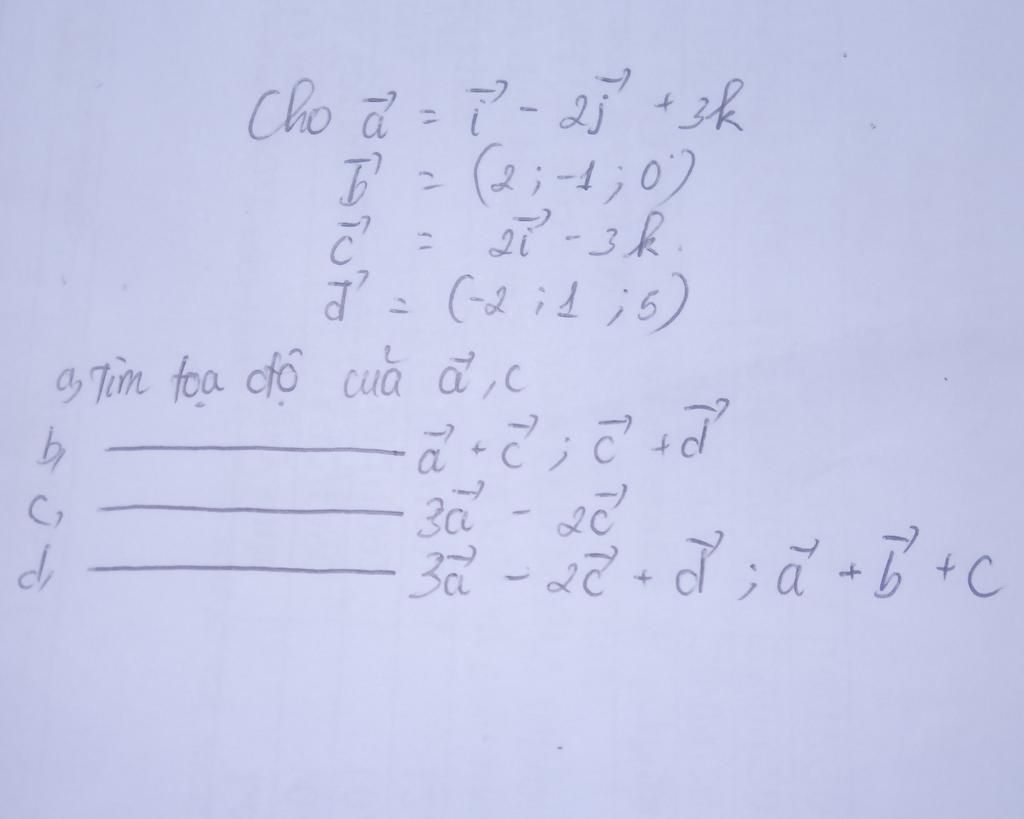 Cho a⃗ = i⃗ - 2j⃗ + 3k
b⃗ = (2 ; -1 ; 0)
c⃗ = 2i⃗ - 3k.
d⃗ = (-2 ; 1 ; 5)
a, Tìm tọa độ cuả a⃗, c
b, ———— a⃗ + c⃗ ; c⃗ + d⃗
c, ———— 3a⃗ - 2c⃗
d, ———— 3a⃗ - 2c⃗ + d⃗ ; a⃗ + b⃗ + c